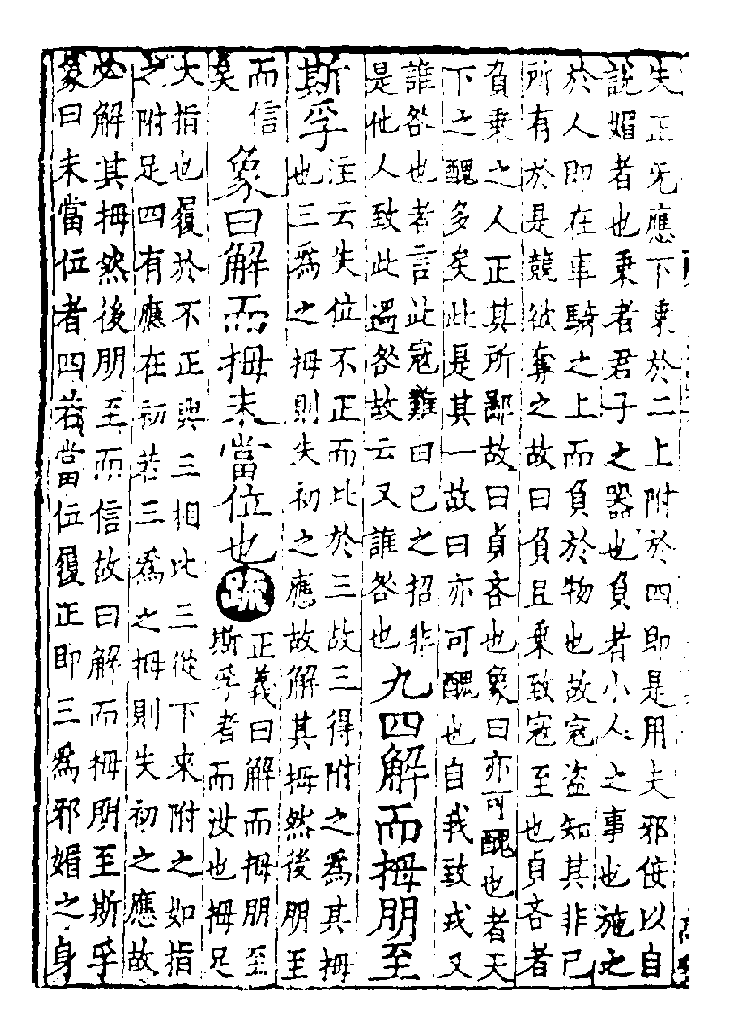 失正无應下乗於二上附於四即是用夫邪佞以自
說媚者也乗者君子之器也負者小人之事也施之
於人即在車騎之上而負於物也故寇盗知其非己
所有於是競欲奪之故曰負且乗致寇至也貞吝者
負乗之人正其所鄙故曰貞吝也象曰亦可醜也者天
下之醜多矣此是其一故曰亦可醜也自我致戎又
誰咎也者言此寇難由己之招非
是他人致此過咎故云又誰咎也
九四解而拇朋至
斯孚
注云失位不正而比於三故三得附之為其拇
也三為之拇則失初之應故解其拇然後朋至
而信
矣
象曰解而拇未當位也
疏
正義曰解而拇朋至
斯孚者而汝也拇足
大指也履於不正與三相比三從下來附之如指
之附足四有應在初若三為之拇則失初之應故
必解其拇然後朋至而信故曰解而拇朋至斯孚
象曰未當位者四若當位履正即三為邪媚之身